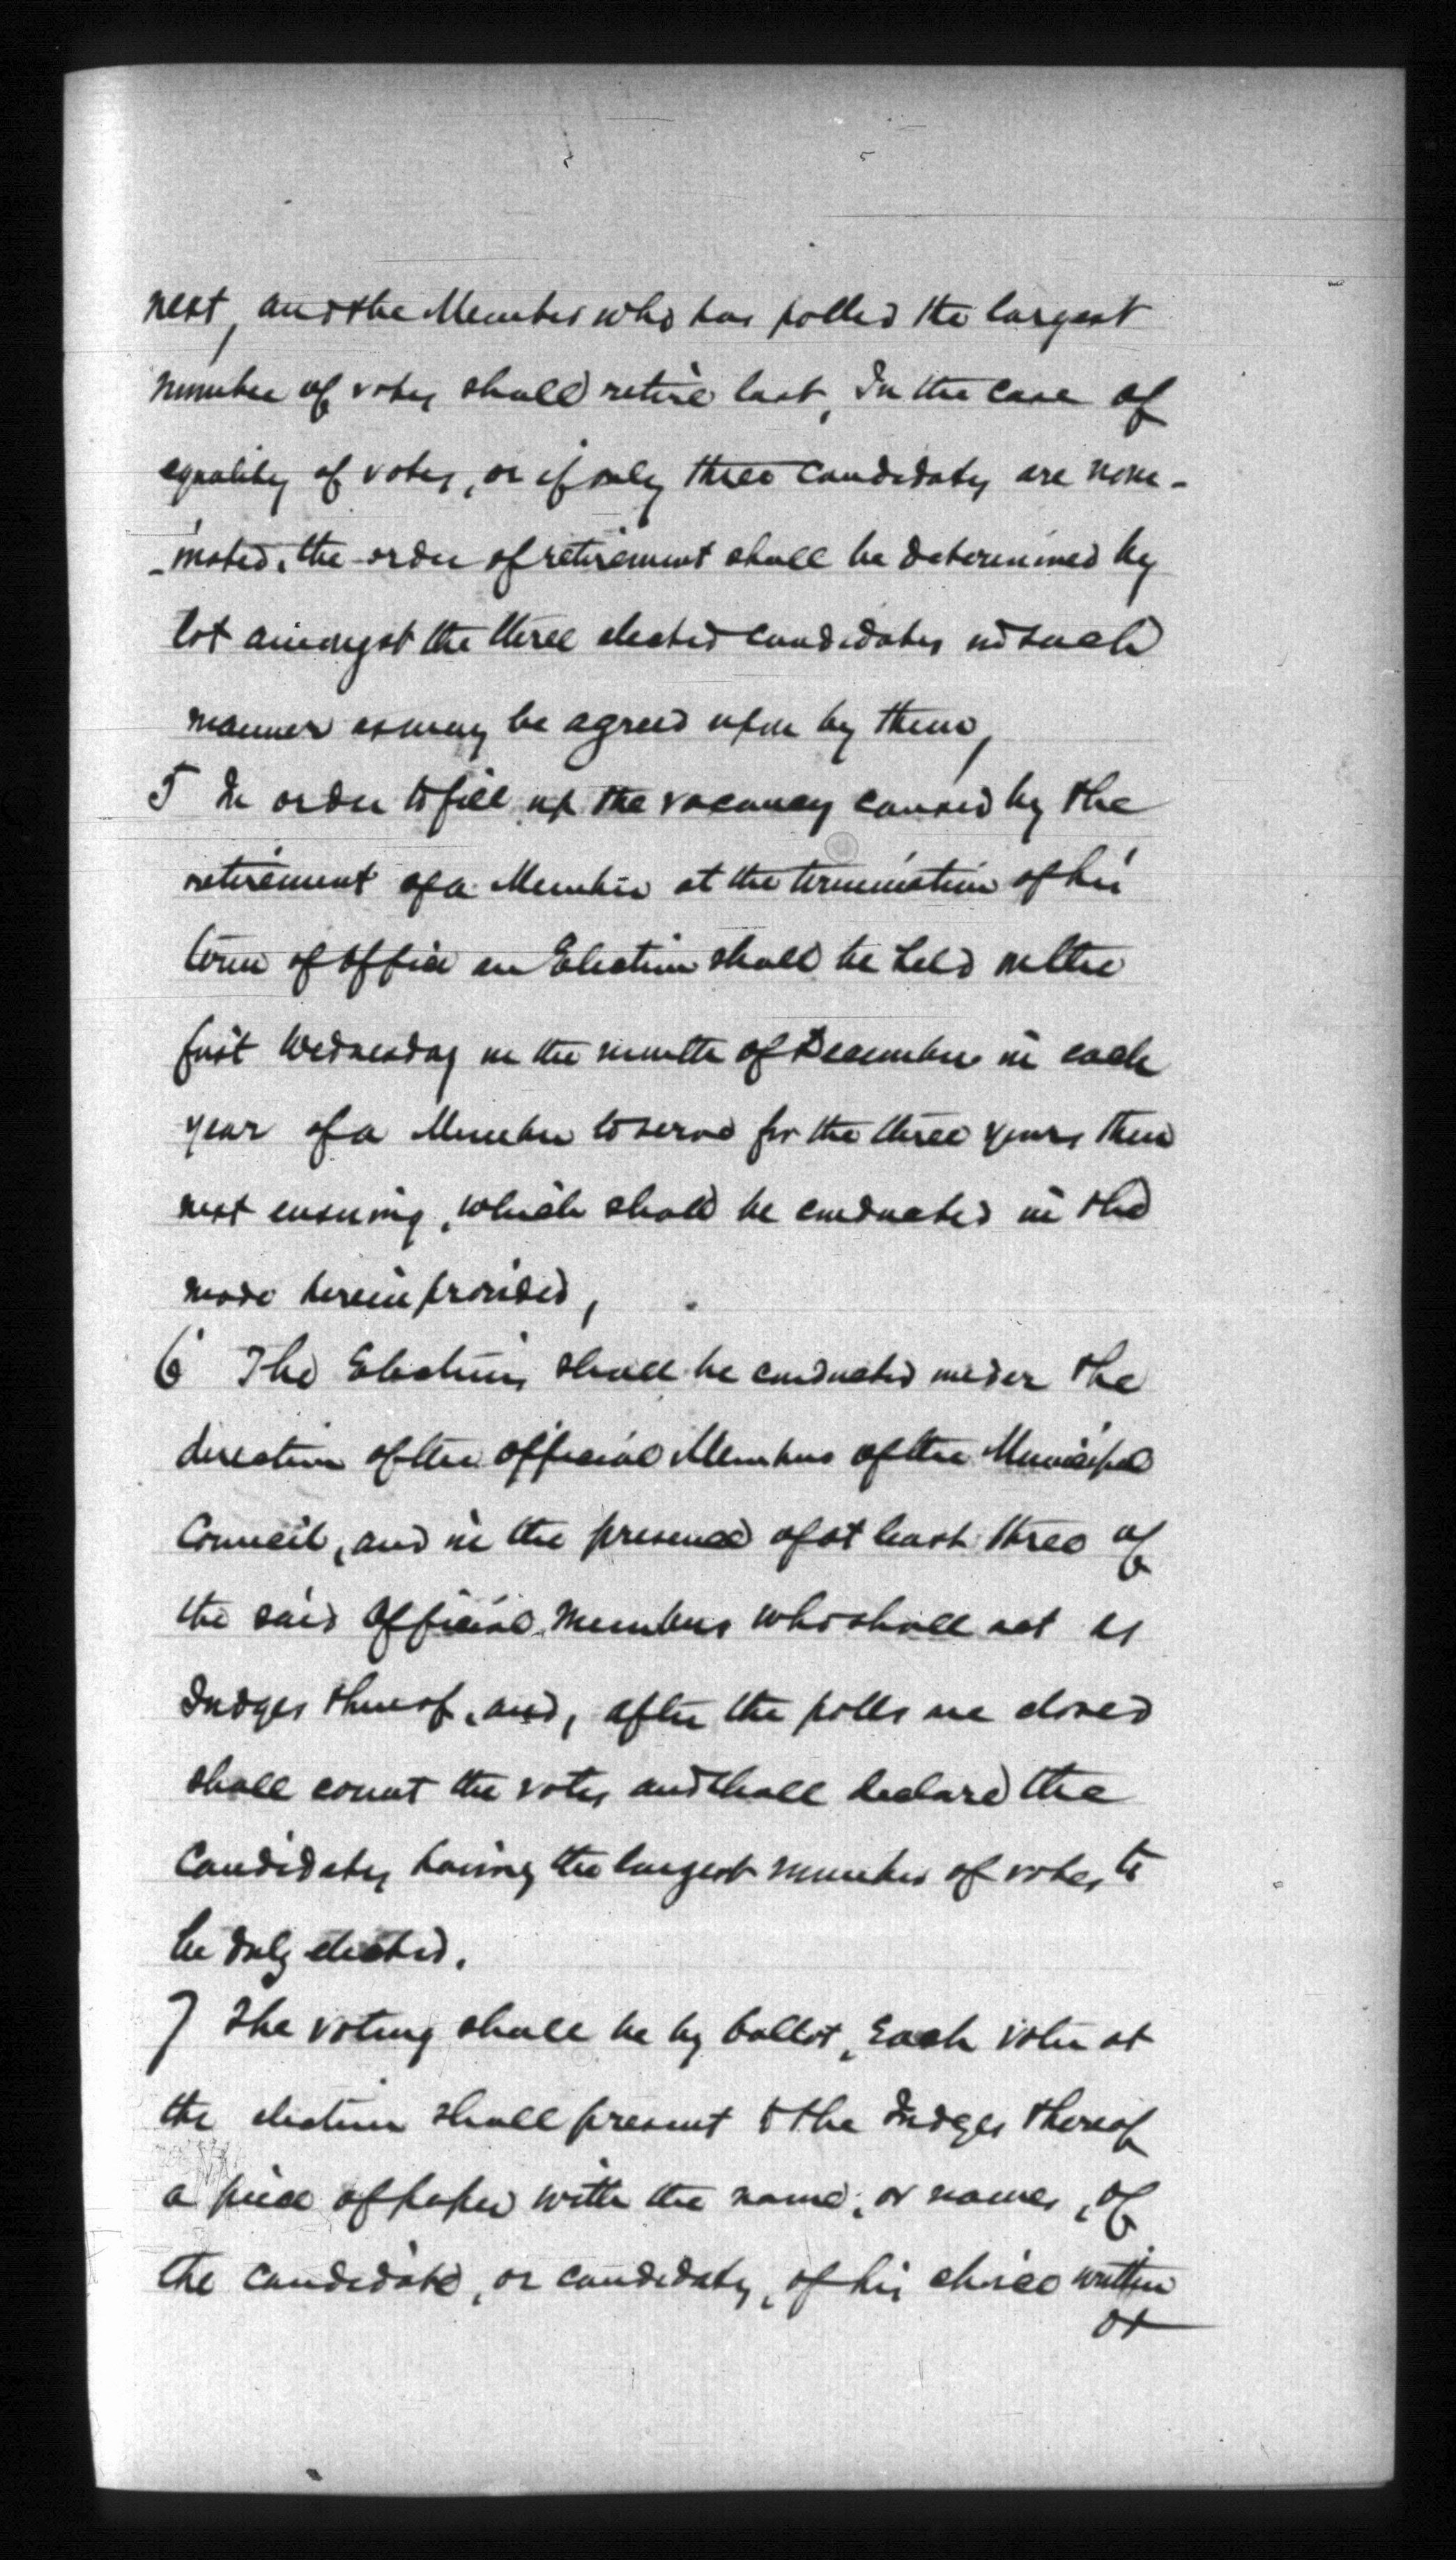 next, and the Member who has polled the largest
number of votes shall retire last, In the case of
equality of votes, or if only three candidates are nom-
-inated, the order of retirement shall be determined by
lot amongst the three elected candidates in such
manner as may be agreed upon by them,
5 In order to fill up the vacancy caused by the
retirement of a Member at the termination of his
term of office an Election shall be held on the
first Wednesday in the month of December in each
year of a Member to serve for the three years then
next ensuing, which shall be conducted in the
mode herein provided,
6 The Elections shall be conducted under the
direction of the official Members of the Municipal
Council, and in the presence of at least three of
the said Official Members who shall act as
Judges thereof, and, after the polls are closed
shall count the votes and shall declare the
Candidates having the largest number of votes to
be duly elected.
7 The voting shall be by ballot, Each voter at
the election shall present to the Judges thereof
a piece of paper with the name, or names, of
the candidate, or candidates, of his choice written
or